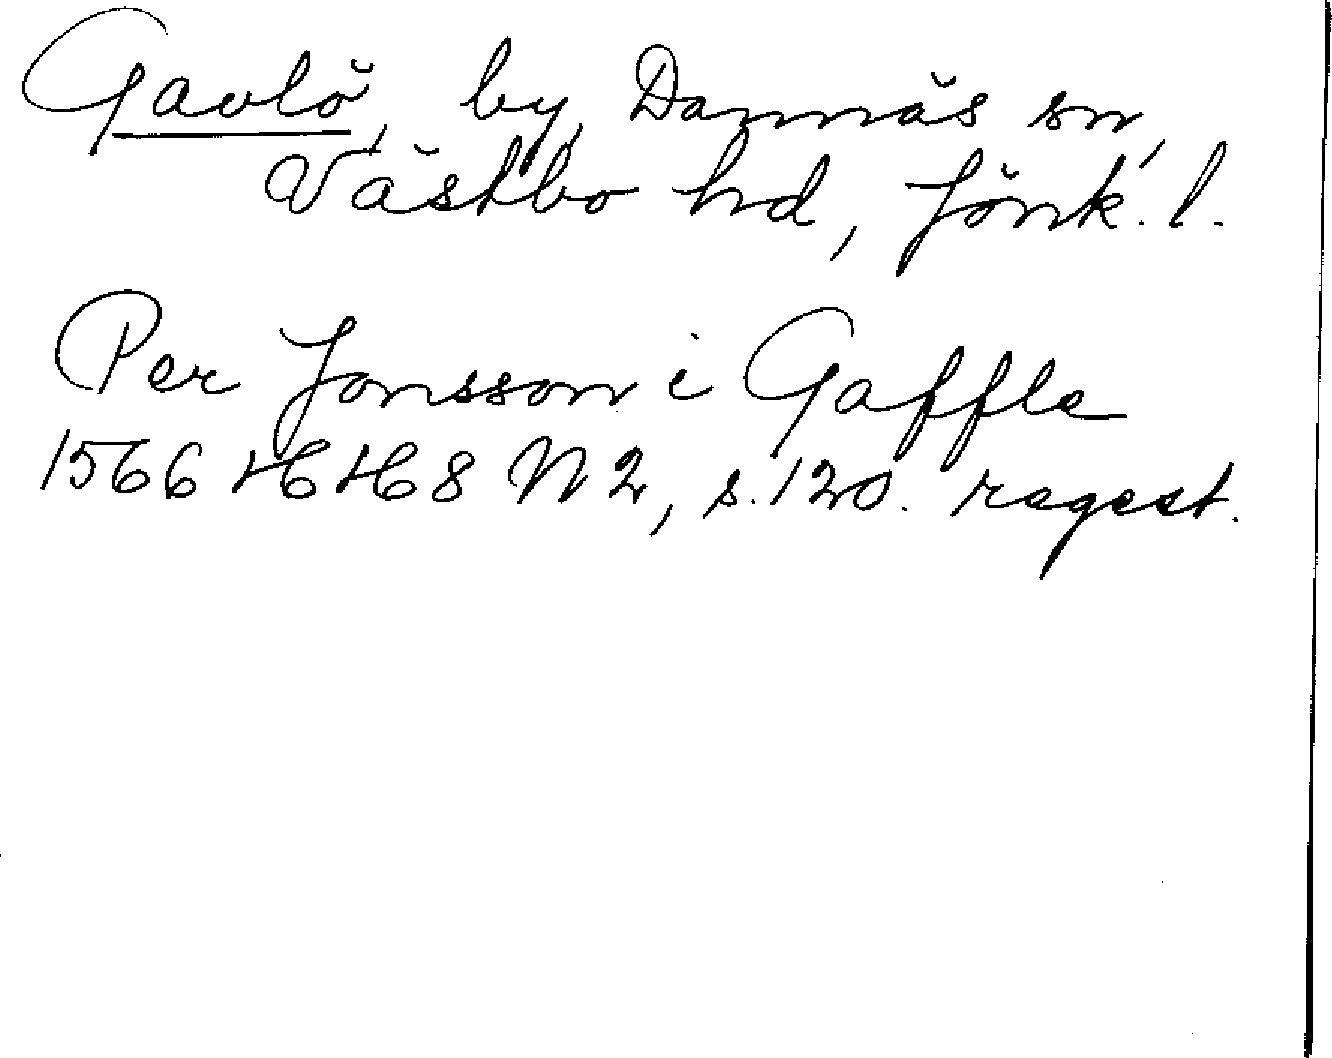 Gavlö, by, Dannäs sn,
Västbo hd, Jönk. l.
Per Jonsson i Gaffle
1566 HH 8 N 2, s. 120. regest.